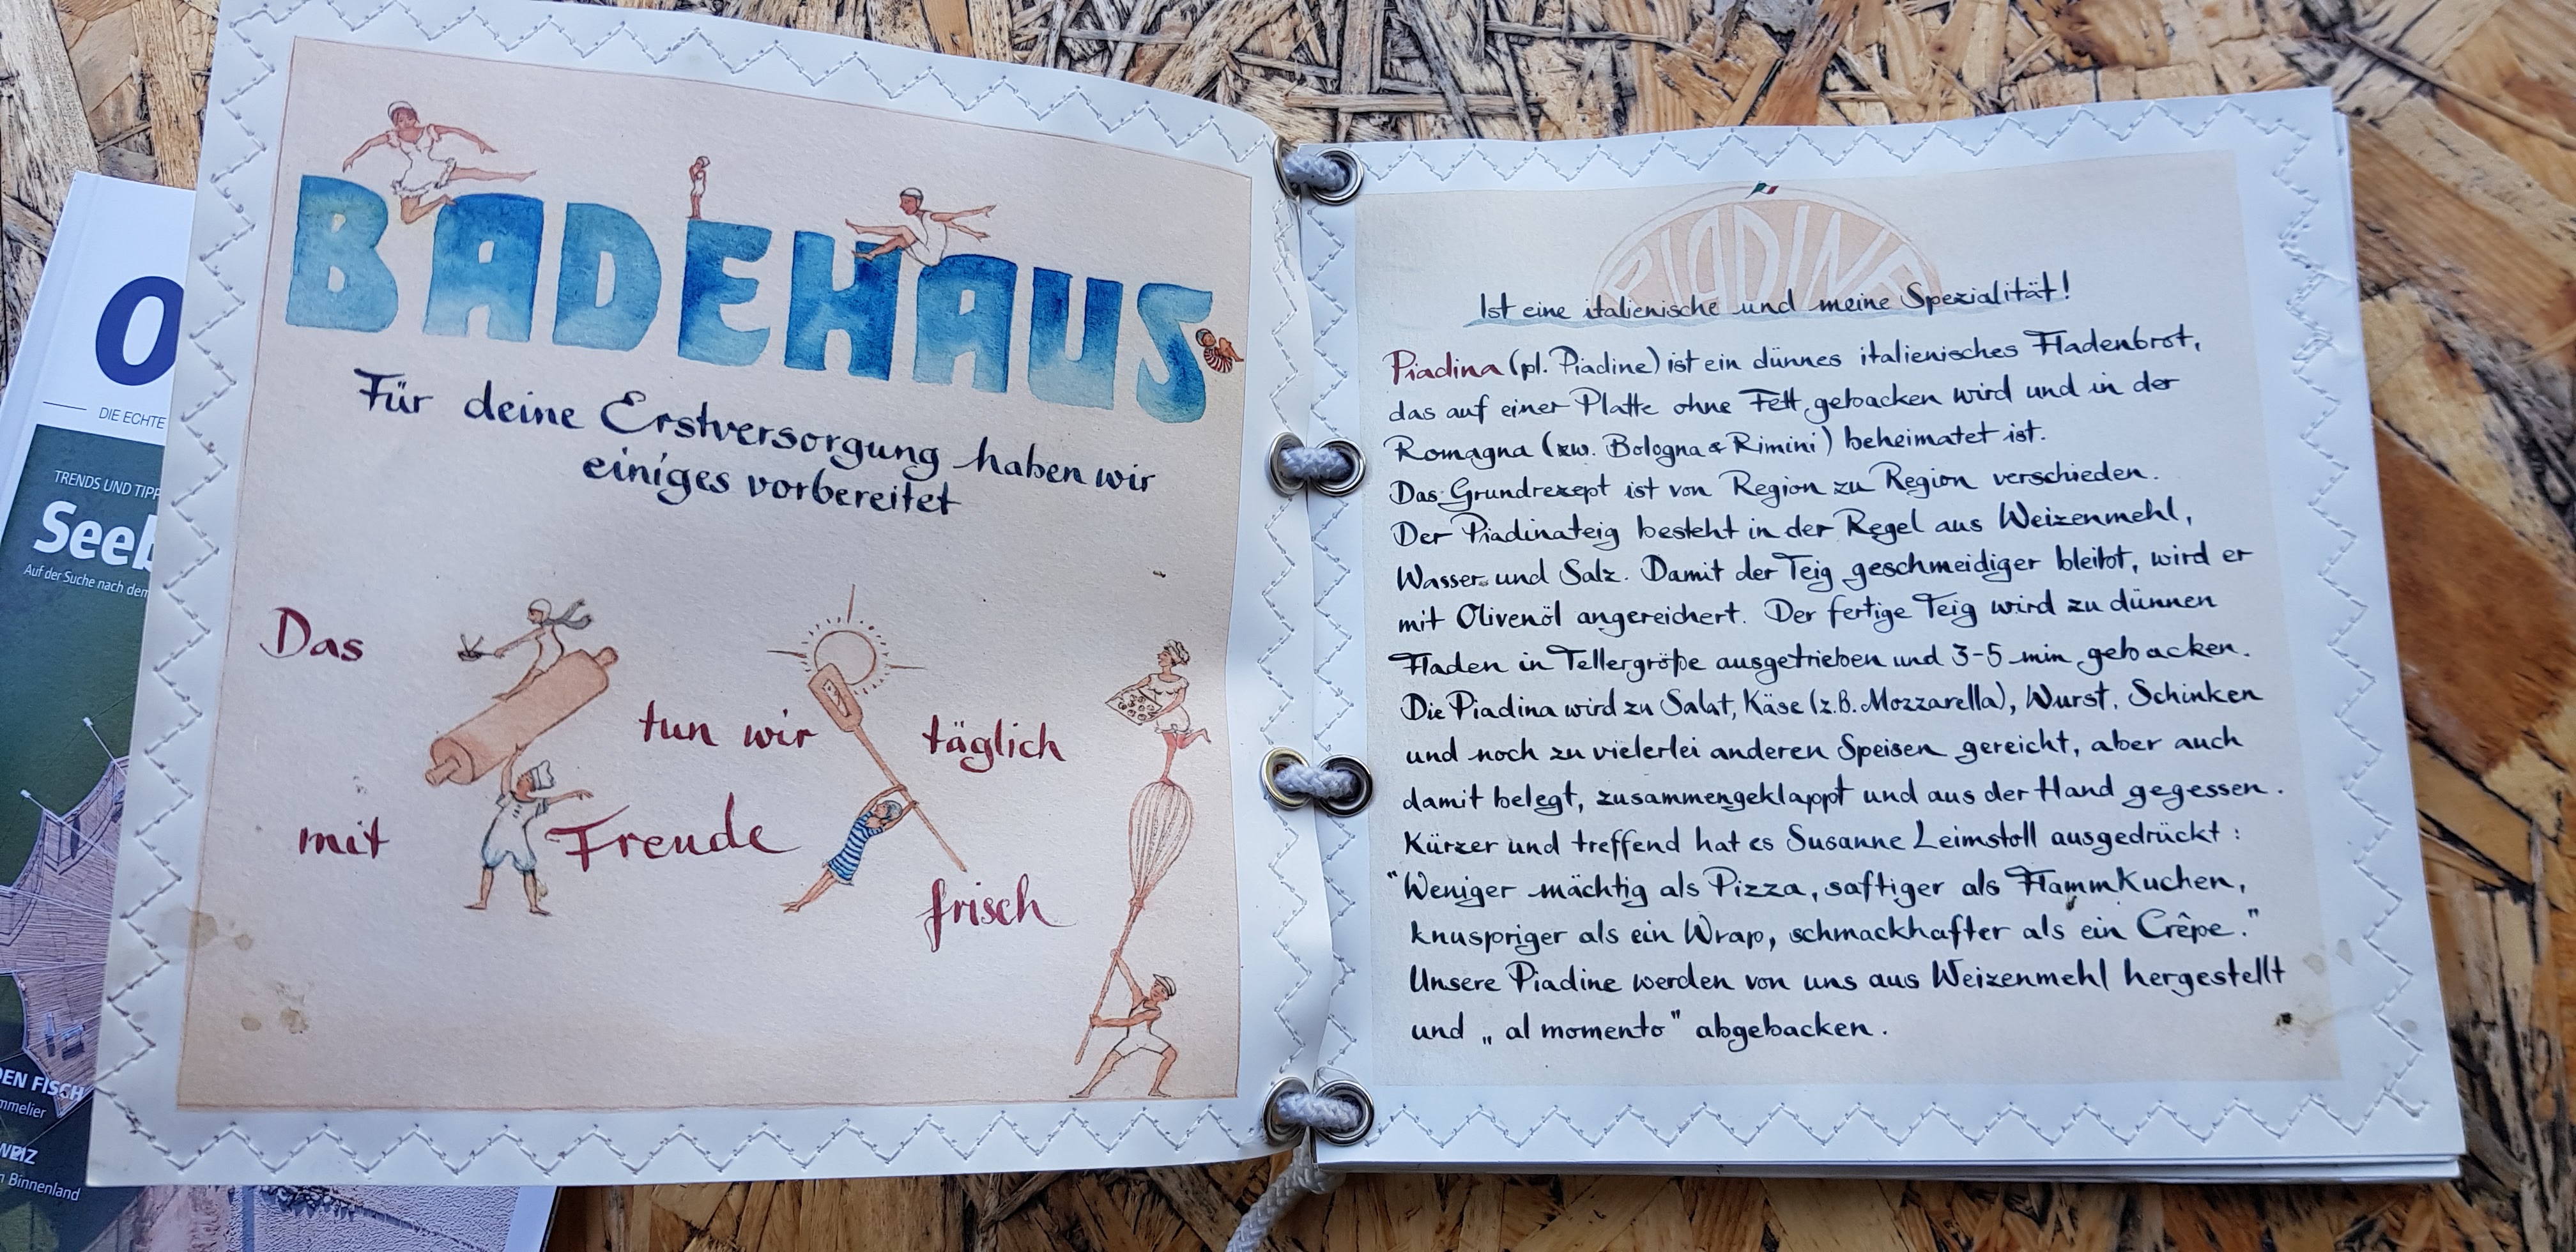 BADEHAUS
Für deine Erstversorgung haben wir
einiges vorbereitet
Das
tun wir
täglich
mit
Freude
frisch
PIADINE
Ist eine italienische und meine Spezialität!
Piadina (pl. Piadine) ist ein dünnes italienisches Fladenbrot,
das auf einer Platte ohne Fett gebacken wird und in der
Romagna (zw. Bologna & Rimini) beheimatet ist.
Das Grundrezept ist von Region zu Region verschieden.
Der Piadinateig besteht in der Regel aus Weizenmehl,
Wasser und Salz. Damit der Teig geschmeidiger bleibt, wird er
mit Olivenöl angereichert. Der fertige Teig wird zu dünnen
Fladen in Tellergröße ausgetrieben und 3-5 min gebacken.
Die Piadina wird zu Salat, Käse (z.B. Mozzarella), Wurst, Schinken
und noch zu vielerlei anderen Speisen gereicht, aber auch
damit belegt, zusammengeklappt und aus der Hand gegessen.
Kürzer und treffend hat es Susanne Leimstoll ausgedrückt:
"Weniger mächtig als Pizza, saftiger als Flammkuchen,
knuspriger als ein Wrap, schmackhafter als ein Crêpe."
Unsere Piadine werden von uns aus Weizenmehl hergestellt
und „al momento" abgebacken.
O
DIE ECHTE
TRENDS UND TIPP
Seeb
Auf der Suche nach dem
DEN FISCH
mmelier
WEIZ
n Binnenland